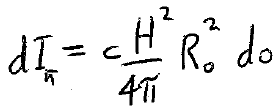 dI_n̄ = c H²/4π R₀² do